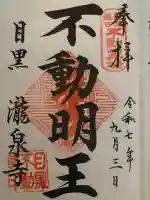 奉拝
令和七年
九月三日
不動明王
目黒
瀧泉寺